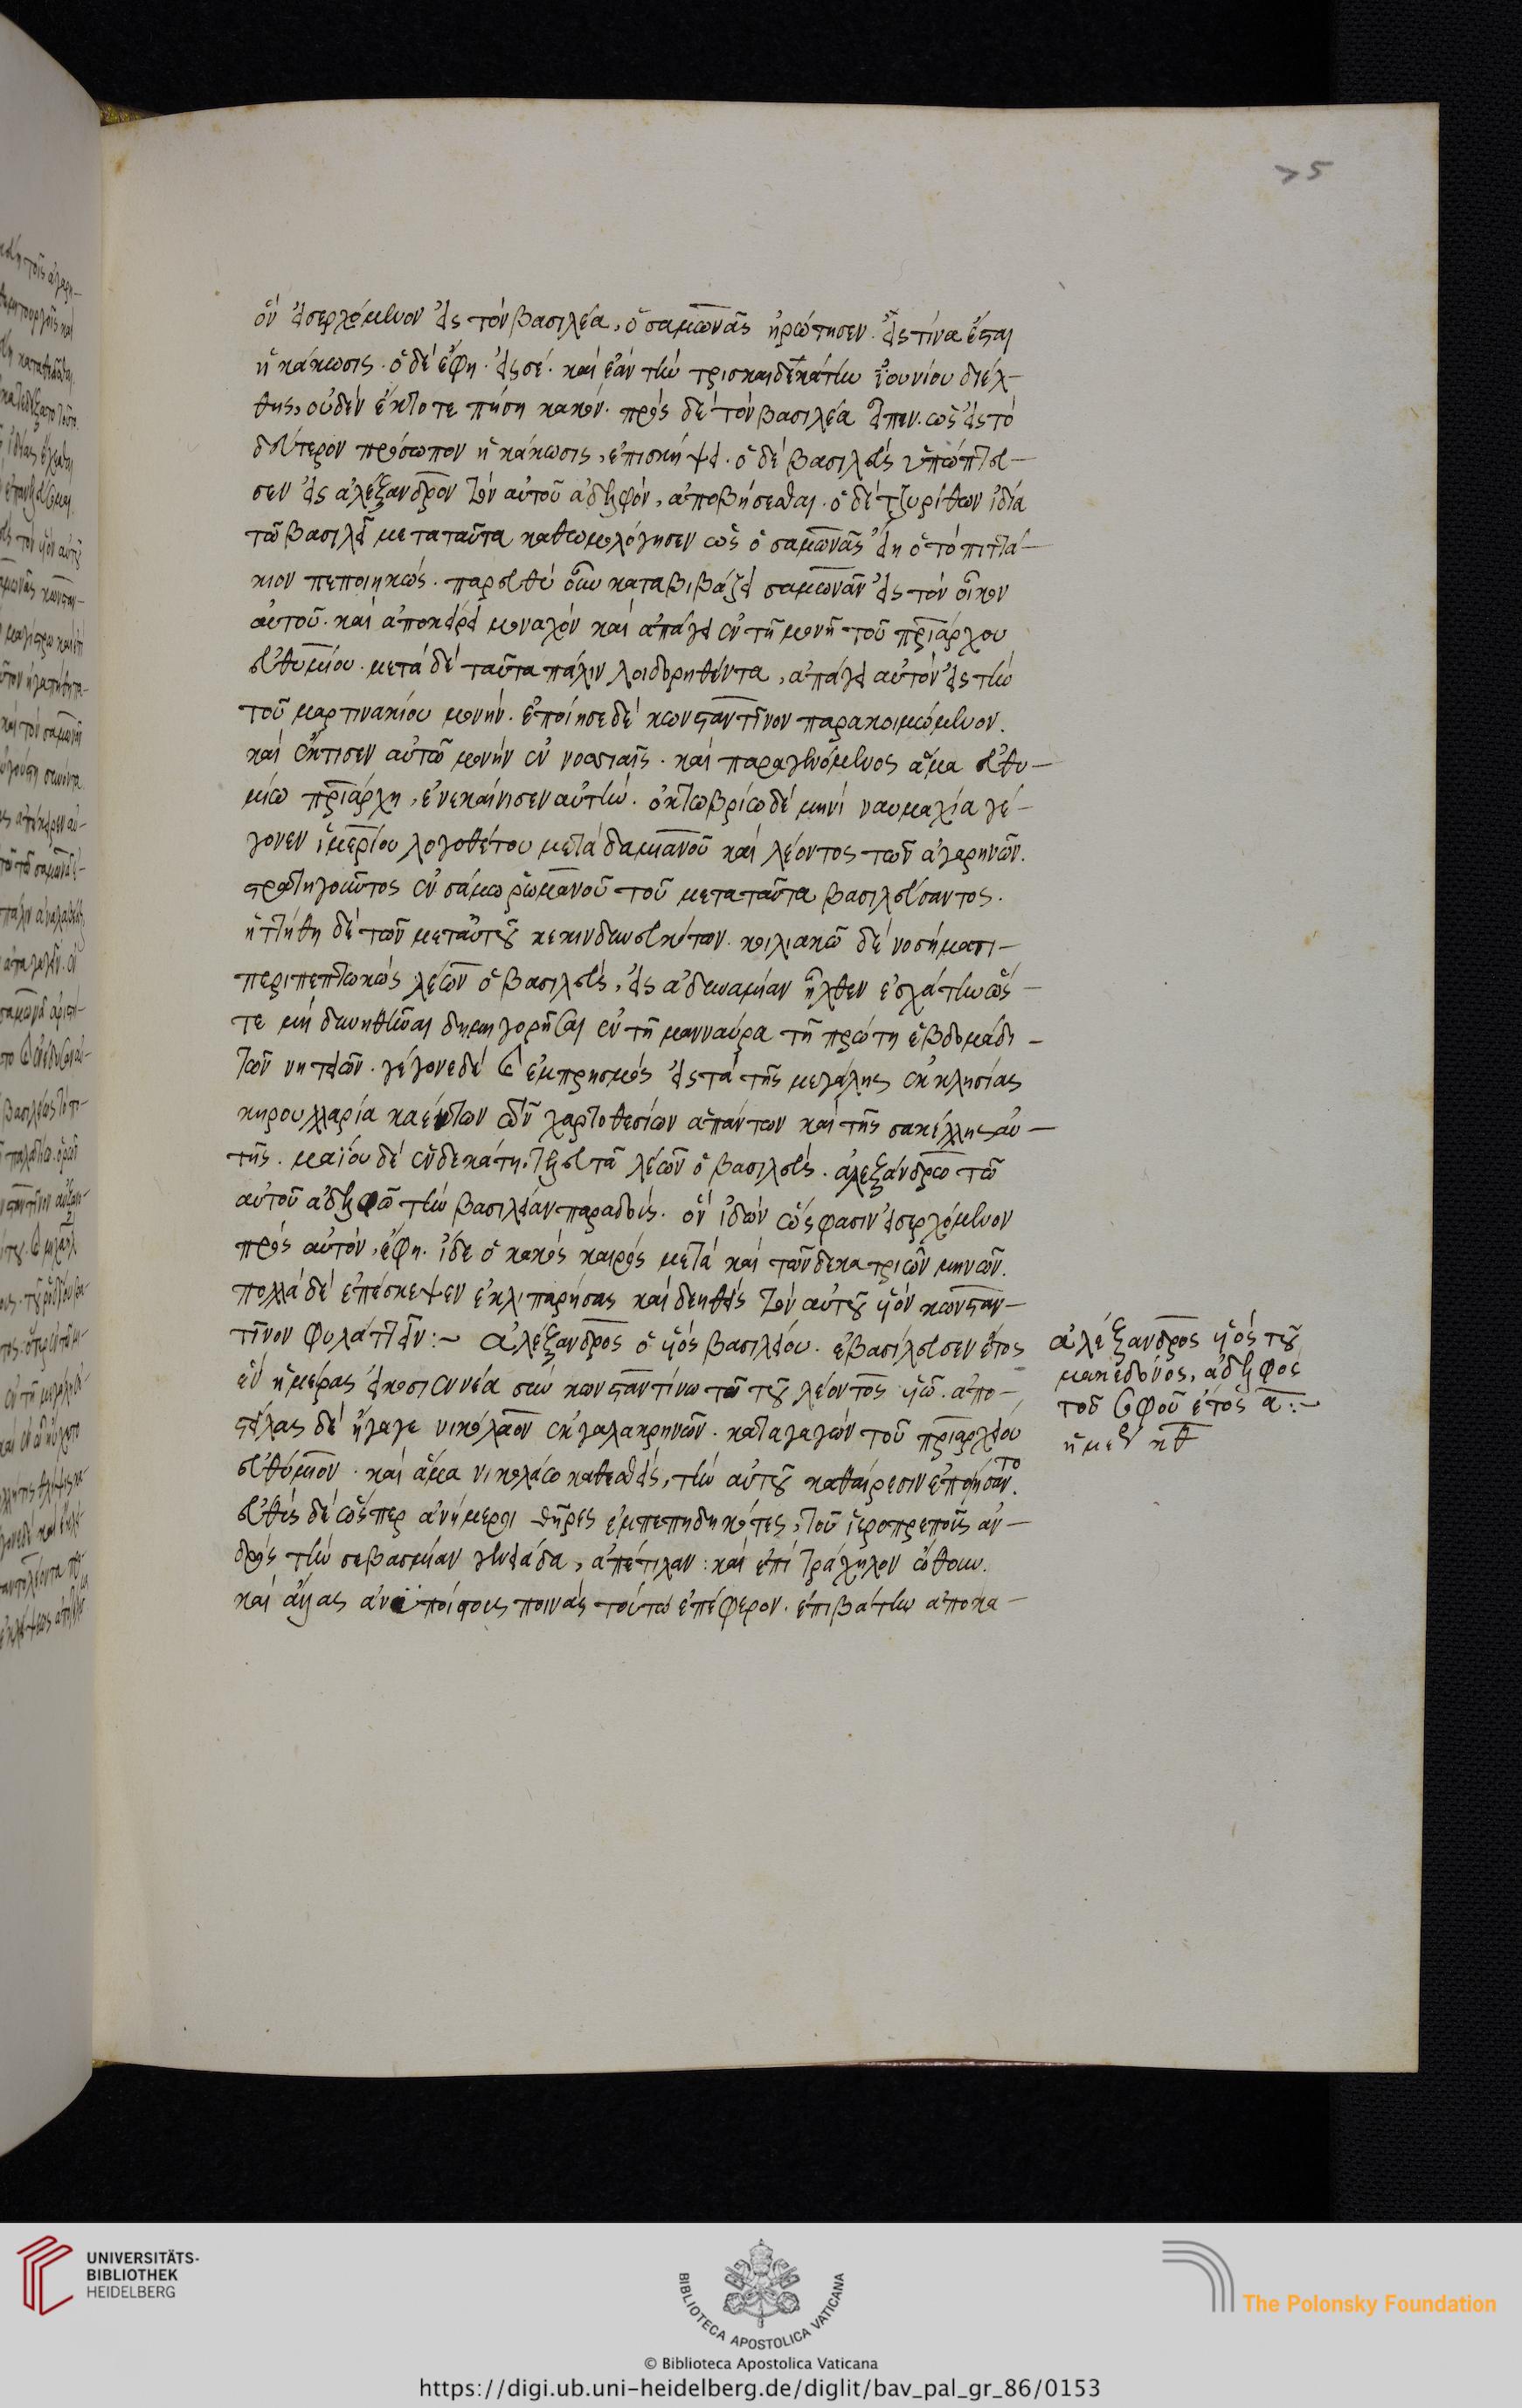 75
ὃν εἰσερχόμενον εἰς τὸν βασιλέα, ὁ σαμωνᾶς ἠρώτησεν. εἰς τίνα ἔσται
ἡ κάκωσις. ὁ δὲ ἔφη. εἰς σέ. καὶ ἐὰν τὴν τρισκαιδεκάτην ἰουνίου διέλ-
θης, οὐδὲν ἔκτοτε πήση κακόν. πρὸς δὲ τὸν βασιλέα εἶπεν. ὡς εἰς τὸ
δεύτερον πρόσωπον ἡ κάκωσις, ἐπισκήψει. ὁ δὲ βασιλεὺς ὑπώπτευ-
σεν εἰς ἀλέξανδρον τὸν αὐτοῦ ἀδελφόν, ἀποβήσεσθαι. ὁ δὲ τζυρίθων ἰδία
τῶ βασιλεῖ μεταταῦτα καθωμολόγησεν ὡς ὁ σαμωνᾶς εἴη ὁ τὸ πιττά-
κιον πεποιηκώς. παρευθὺ οὖν καταβιβάζει σαμωνᾶν εἰς τὸν οἶκον
αὐτοῦ. καὶ ἀποκείρει μοναχόν καὶ ἀπάγει ἐν τῆ μονῆ τοῦ πριάρχου
εὐθυμίου. μετὰ δὲ ταῦτα πάλιν λοιδορηθέντα, ἀπάγει αὐτὸν εἰς τὴν
τοῦ μαρτινακίου μονήν. ἐποίησε δὲ κωνσταντῖνον παρακοιμώμενον.
καὶ ἔκτισεν αὐτῶ μονὴν ἐν νοσιαῖς. καὶ παραγενόμενος ἅμα εὐθυ-
μίω πριάρχη, ἐνεκαίνισεν αὐτήν. ὀκτωβρίω δὲ μηνὶ ναυμαχία γέ-
γονεν ἱμερίου λογοθέτου μετὰ δαμιανοῦ καὶ λέοντος τῶν ἀγαρηνῶν.
στρατηγοῦντος ἐν σάμω ῥωμανοῦ τοῦ μεταταῦτα βασιλεύσαντος.
ἡττήθη δὲ τῶν μεταὐτοῦ κεκινδυνευκότων. κοιλιακῶ δὲ νοσήματι
περιπεπτωκὼς λέων ὁ βασιλεύς, εἰς ἀδυναμίαν ἦλθεν ἐσχάτην ὥσ-
τε μὴ δυνηθῆναι δημηγορῆσαι ἐν τῆ μανναύρα τῆ πρώτη ἑβδομάδι
τῶν νηστειῶν. γέγονε δὲ καὶ ἐμπρησμὸς εἰς τὰ τῆς μεγάλης ἐκκλησίας
κηρουλλαρία καέντων τῶν χαρτοθεσίων ἁπάντων καὶ τῆς σακέλλης αὐ-
τῆς. μαΐου δὲ ἑνδεκάτη, τελευτᾶ λέων ὁ βασιλεύς. ἀλεξάνδρω τῶ
αὐτοῦ ἀδελφῶ τὴν βασιλείαν παραδούς. ὃν ἰδὼν ὥς φασιν εἰσερχόμενον
πρὸς αὐτόν, ἔφη. ἴδε ὁ κακὸς καιρὸς μετὰ καὶ τῶν δεκατριῶν μηνῶν.
πολλὰ δὲ ἐπέσκεψεν ἐκλιπαρήσας καὶ δεηθεὶς τὸν αὐτοῦ υἱὸν κωνσταν-
τῖνον φυλάττειν:~ ἀλέξανδρος ὁ υἱὸς βασιλείου. ἐβασίλευσεν ἔτος
ἓν ἡμέρας εἰκοσιεννέα σὺν κωνσταντίνω τῶ τοῦ λέοντος υἱῶ. ἀπο-
στείλας δὲ ἤγαγε νικόλαον ἐκ γαλακρηνῶν. καταγαγὼν τοῦ πριαρχείου
εὐθύμιον. καὶ ἅμα νικολάω καθεσθείς, τὴν αὐτοῦ καθαίρεσιν ἐποιήσαντο.
εὐθὺς δὲ ὥσπερ ἀνήμεροι θῆρες ἐμπεπηδηκότες, τοῦ ἱεροπρεποῦς ἀν-
δρὸς τὴν σεβασμίαν γενειάδα, ἀπέτιλαν: καὶ ἐπὶ τράχηλον ὤθουν.
καὶ ἄλλας ἀνυποίστους ποινὰς τούτω ἐπέφερον. ἐπιβάτην ἀποκα-
ἀλέξανδρος υἱὸς τοῦ
μακεδόνος, ἀδελφὸς
τοῦ σοφοῦ ἔτος α:~
ἡμερ κθ
UNIVERSITÄTS-
BIBLIOTHEK
HEIDELBERG
BIBLIOTECA APOSTOLICA VATICANA
© Biblioteca Apostolica Vaticana
The Polonsky Foundation
https://digi.ub.uni-heidelberg.de/diglit/bav_pal_gr_86/0153